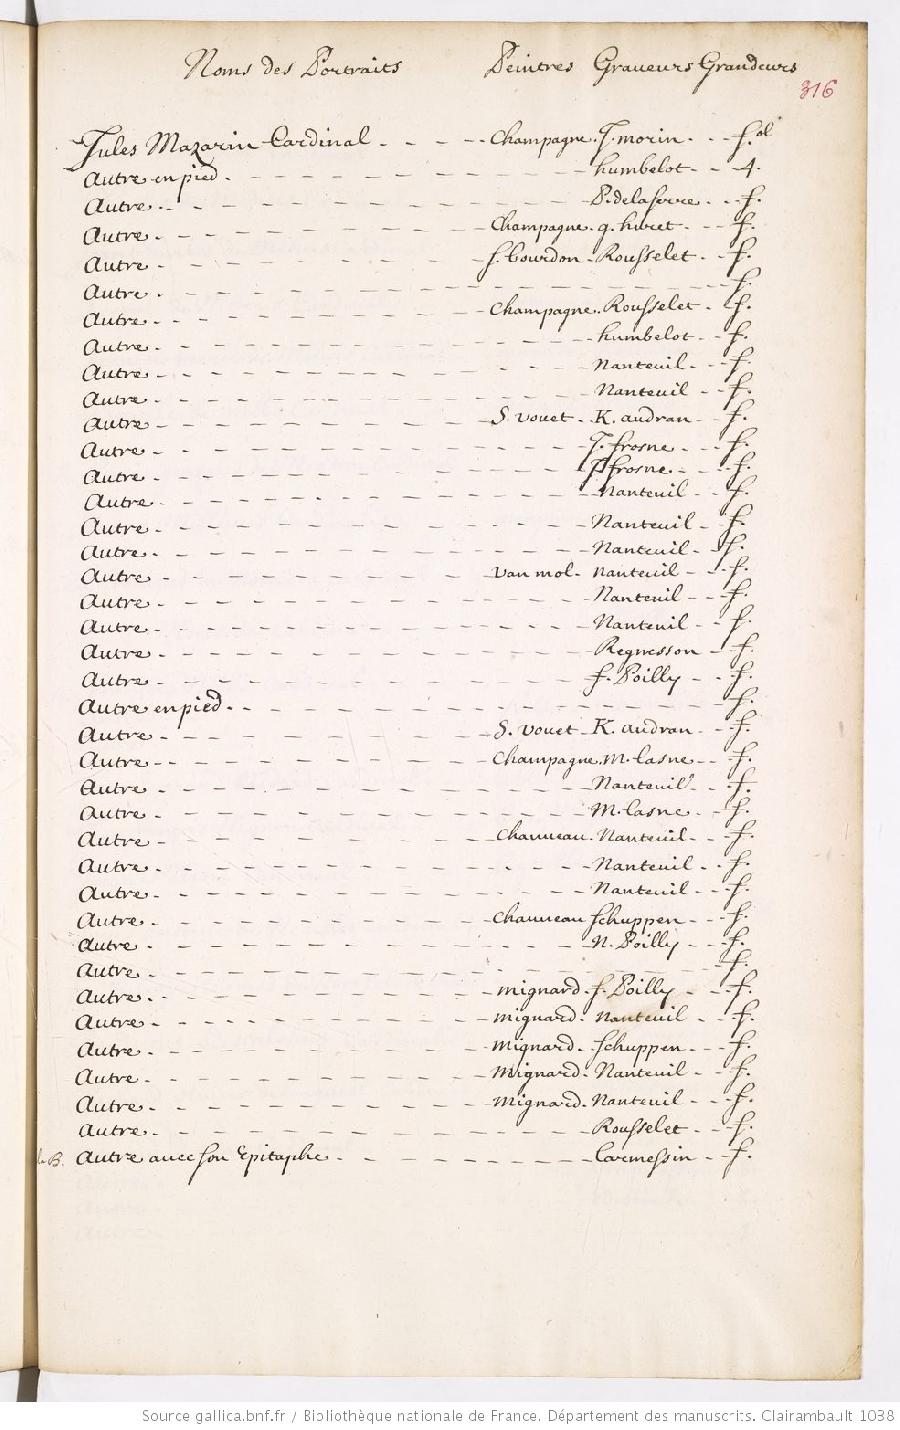 Noms des Portraits Peintres Graveurs Grandeurs
316
Jules Mazarin Cardinal - - - - Champagne. J. morin - - - f.ol
Autre en pied - - - - humbelot - - 4.
Autre - - - - P. delaserre - - f.
Autre - - - - Champagne. g. huret - - - f.
Autre - - - - f. bourdon - Rousselet - - f.
Autre - - - - f.
Autre - - - - Champagne. Rousselet - f.
Autre - - - - humbelot - - f.
Autre - - - - Nanteuil - - f.
Autre - - - - Nanteuil - - f.
Autre - - - - S. vouet - K. audran - - f.
Autre - - - - J. frosne - - f.
Autre - - - - J. frosne - - f.
Autre - - - - Nanteuil - - f.
Autre - - - - Nanteuil - f.
Autre - - - - Nanteuil - - f.
Autre - - - - Van mol - Nanteuil - - f.
Autre - - - - Nanteuil - - f.
Autre - - - - Nanteuil - - f.
Autre - - - - Regnesson - f.
Autre - - - - f. Poilly - - f.
Autre en pied - - - - f.
Autre - - - - S. vouet - K. audran - - f.
Autre - - - - Champagne. M. lasne - - f.
Autre - - - - Nanteuil - - f.
Autre - - - - M. lasne - - f.
Autre - - - - Chauveau. Nanteuil - - f.
Autre - - - - Nanteuil - - f.
Autre - - - - Nanteuil - - f.
Autre - - - - Chauveau Schuppen - - - f.
Autre - - - - N. Poilly - - f.
Autre - - - - f.
Autre - - - - mignard - f. Poilly - - f.
Autre - - - - mignard - Nanteuil - - f.
Autre - - - - Mignard - Schuppen - - - f.
Autre - - - - Mignard - Nanteuil - - f.
Autre - - - - Mignard - Nanteuil - - f.
Autre - - - - Rousselet - - f.
la B. Autre avec son Epitaphe - - - - Larmessin - - f.
Source gallica.bnf.fr / Bibliothèque nationale de France. Département des manuscrits. Clairambault 1038